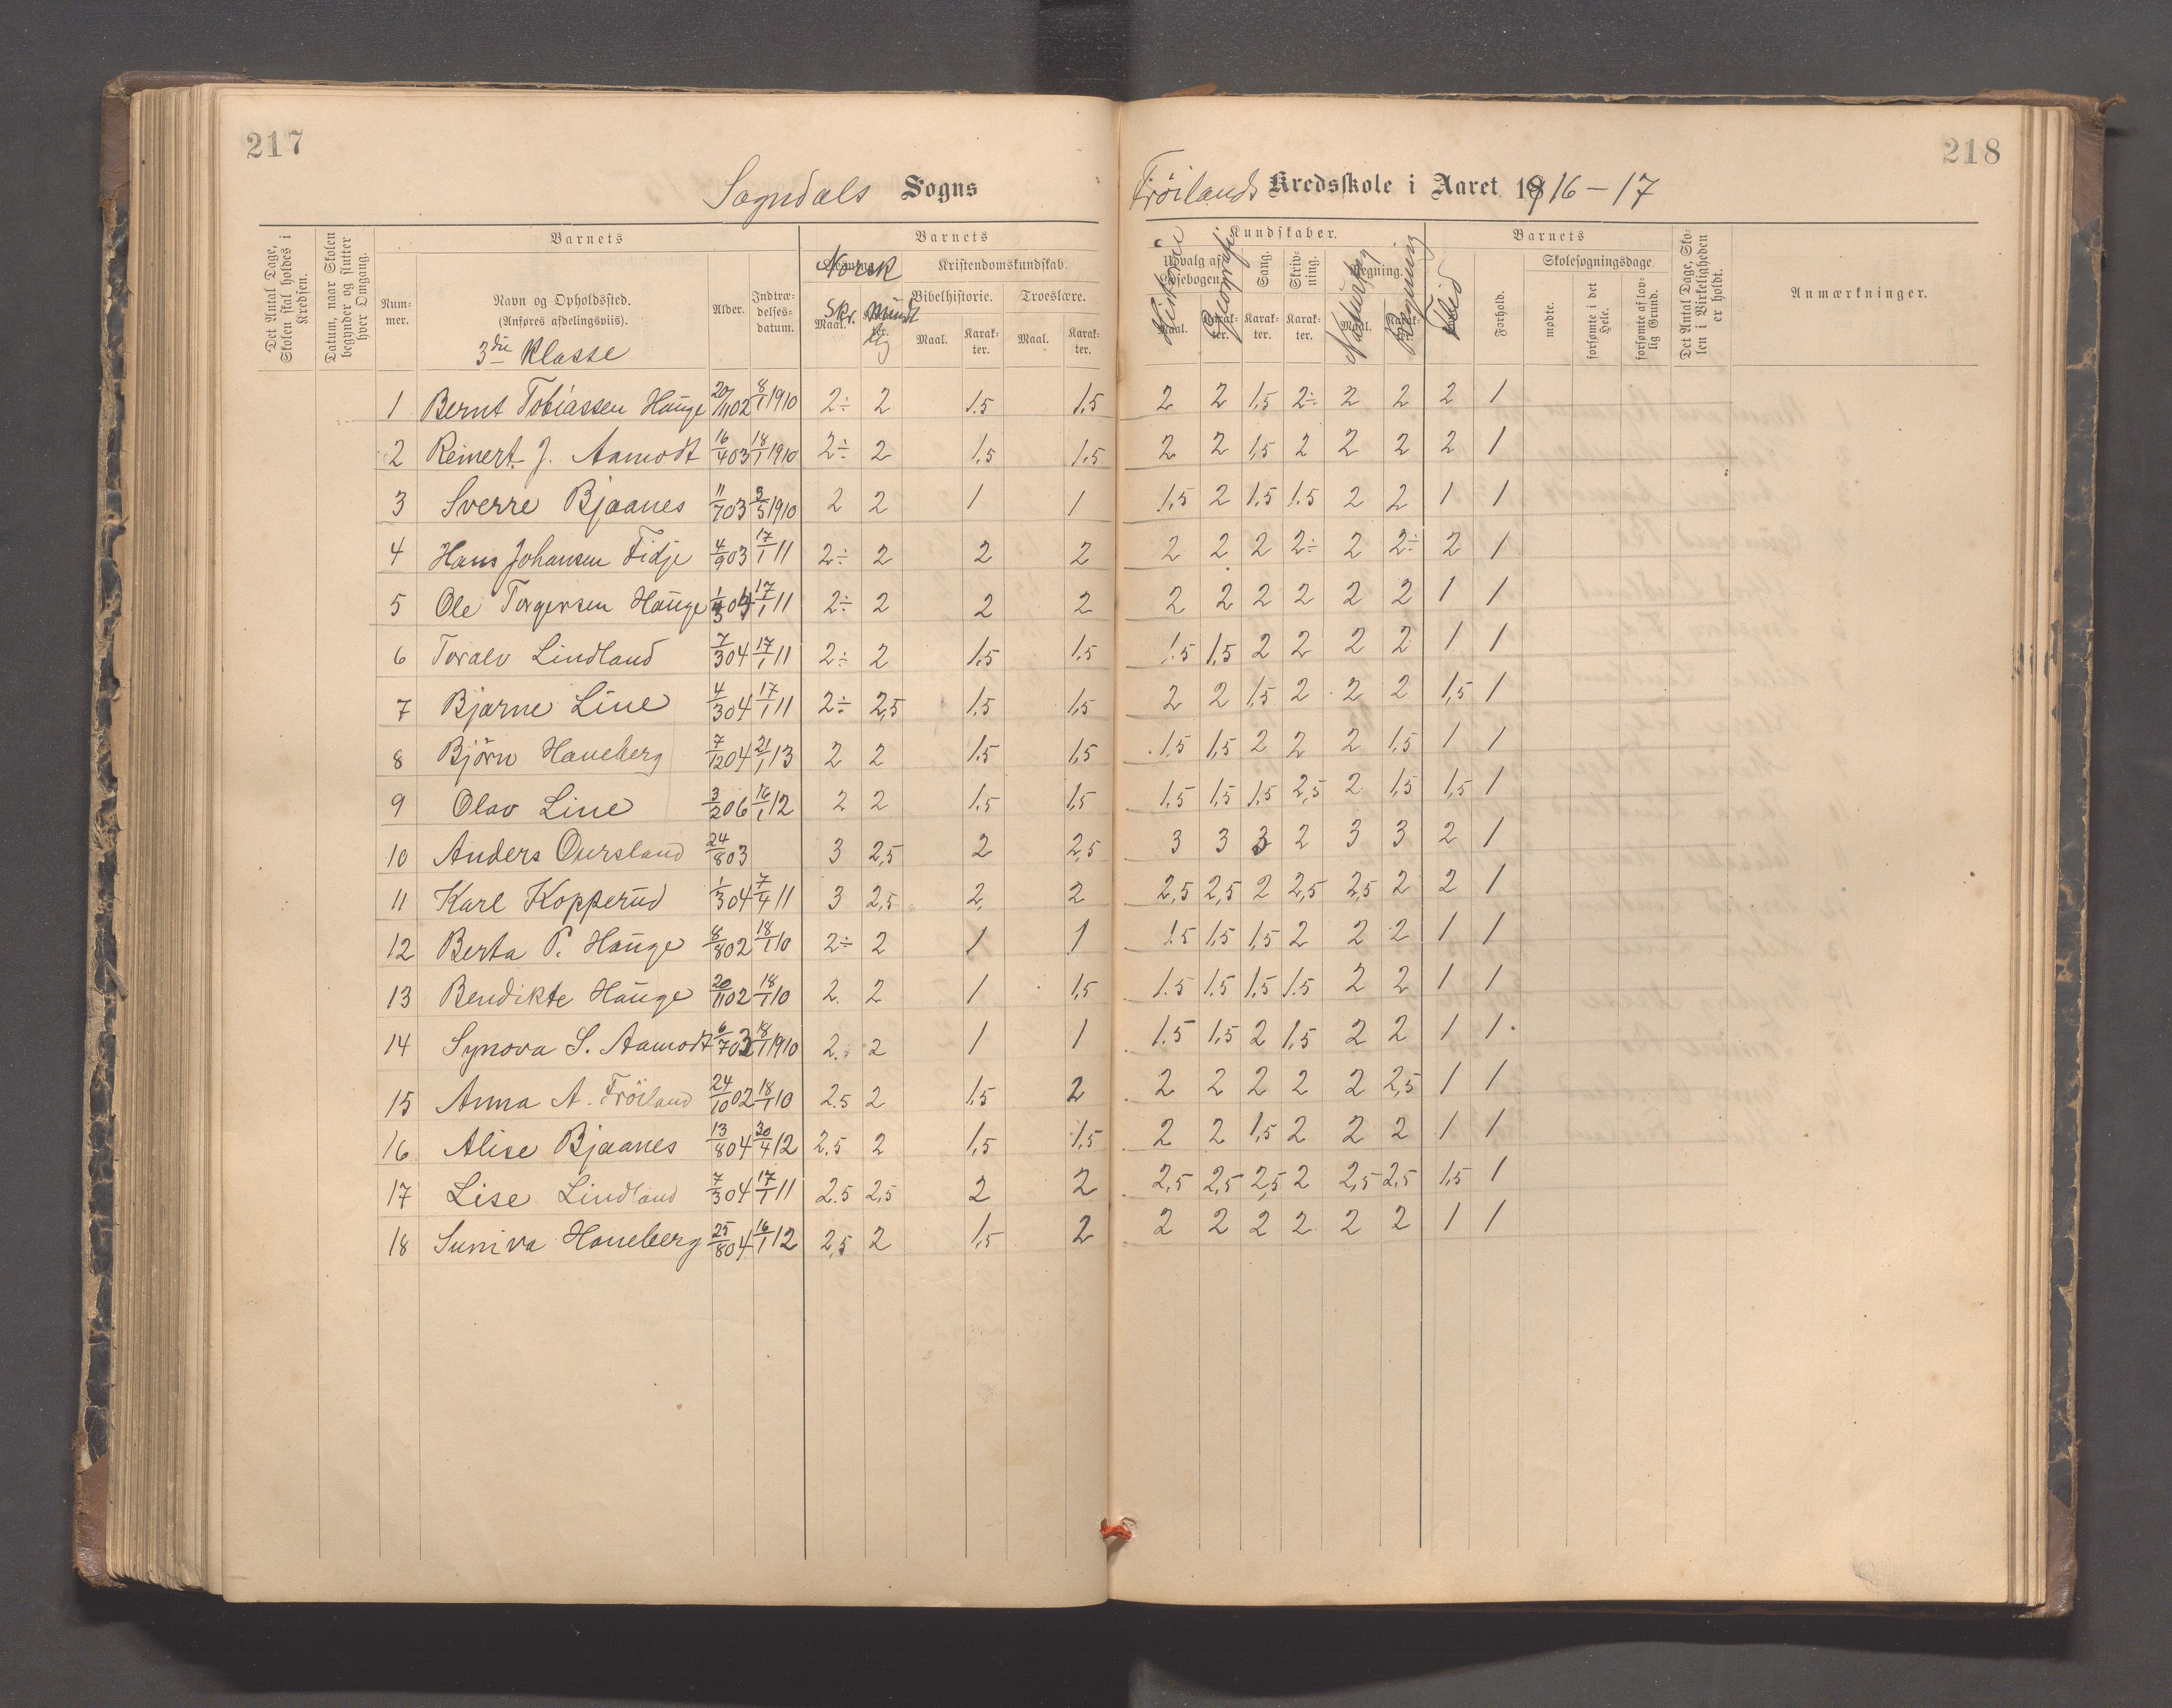 217
Sogndals Sogns
Det Antal Dage, Skolen skal holdes i Kredsen.
Datum, naar Skolen begynder og slutter hver Omgang.
Barnets
Num- mer.
Navn og Opholdssted.
(Anføres afdelingsviis).
3die Klasse
Alder.
Indtræ- delses- datum.
Barnets
Norsk
Skr. Mundtlig
Maal.
Kristendomskundskab.
Bibelhistorie. Troeslære.
Maal. Karak- ter. Maal. Karak- ter.
1 Bernt Tobiassen Hauge 20/11 02 8/1 1910 2÷ 2 1.5 1,5
2 Reinert J. Aamodt 16/4 03 18/1 1910 2÷ 2 1,5 1.5
3 Sverre Bjaanes 11/7 03 3/5 1910 2 2 1 1
4 Hans Johansen Fidje 4/9 03 17/1 11 2÷ 2 2 2
5 Ole Torgersen Hauge 1/3 04 17/1 11 2÷ 2 2 2
6 Toralv Lindland 7/3 04 17/1 11 2÷ 2 1,5 1,5
7 Bjarne Line 4/3 04 17/1 11 2÷ 2,5 1,5 1,5
8 Björn Haneberg 7/12 04 21/1 13 2 2 1.5 1,5
9 Olav Line 3/2 06 16/1 12 2 2 1,5 1,5
10 Anders Oursland 24/8 03 3 2,5 2 2,5
11 Karl Kopperud 1/3 04 7/4 11 3 2,5 2, 2
12 Berta P. Hauge 8/8 02 18/1 10 2÷ 2 1 1
13 Bendikte Hauge 20/11 02 18/1 10 2. 2 1 1,5
14 Synova S. Aamodt 6/7 03 18/1 1910 2. 2 1 1
15 Anna A. Fröiland 24/10 02 18/1 10 2.5 2 1,5 2
16 Alise Bjaanes 13/8 04 30/4 12 2.5 2 1,5 1,5
17 Lise Lindland 7/3 04 17/1 11 2.5 2,5 2 2
18 Suniva Haneberg 25/8 04 16/1 12 2,5 2 1,5 2
218
Fröilands Kredsskole i Aaret 1916-17
Kundskaber.
Udvalg af Læsebogen.
Historie
Geografi
Sang.
Skriv- ning.
Regning.
Naturfag
Regning
Maal. Karak- ter. Karak- ter. Karak- ter. Maal. Karak- ter.
Barnets
Flid
Forhold.
Skolesøgningsdage.
mødte.
forsømte i det Hele.
forsømte af lov- lig Grund.
Det Antal Dage, Sko- len i Virkeligheden er holdt.
Anmærkninger.
2 2 1,5 2÷ 2 2 2 1
2 2 1,5 2 2 2 2 1
1,5 2 1,5 1.5 2 2 1 1
2 2 2 2÷ 2 2÷ 2 1
2 2 2 2 2 2 1 1
1.5 1,5 2 2 2 2 1 1
2 2 1,5 2 2 2 1,5 1
1.5 1,5 2 2 2 1,5 1 1
1,5 1,5 1,5 2,5 2 1,5 1,5 1
3 3 3 2 3 3 2 1
2,5 2,5 2 2,5 2,5 2 2 1
1.5 1,5 1,5 2 2 2 1 1
1.5 1,5 1,5 1.5 2 2 1 1
1.5 1,5 2 1,5 2 2 1 1
2 2 2 2 2 2,5 1 1
2 2 1,5 2 2 2 1 1
2,5 2,5 2,5 2 2,5 2,5 1,5 1
2 2 2 2 2 2 1 1